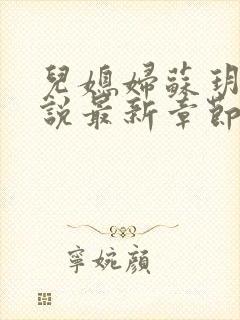 兒媳婦蘇玥
說最新章節
寧婉顏